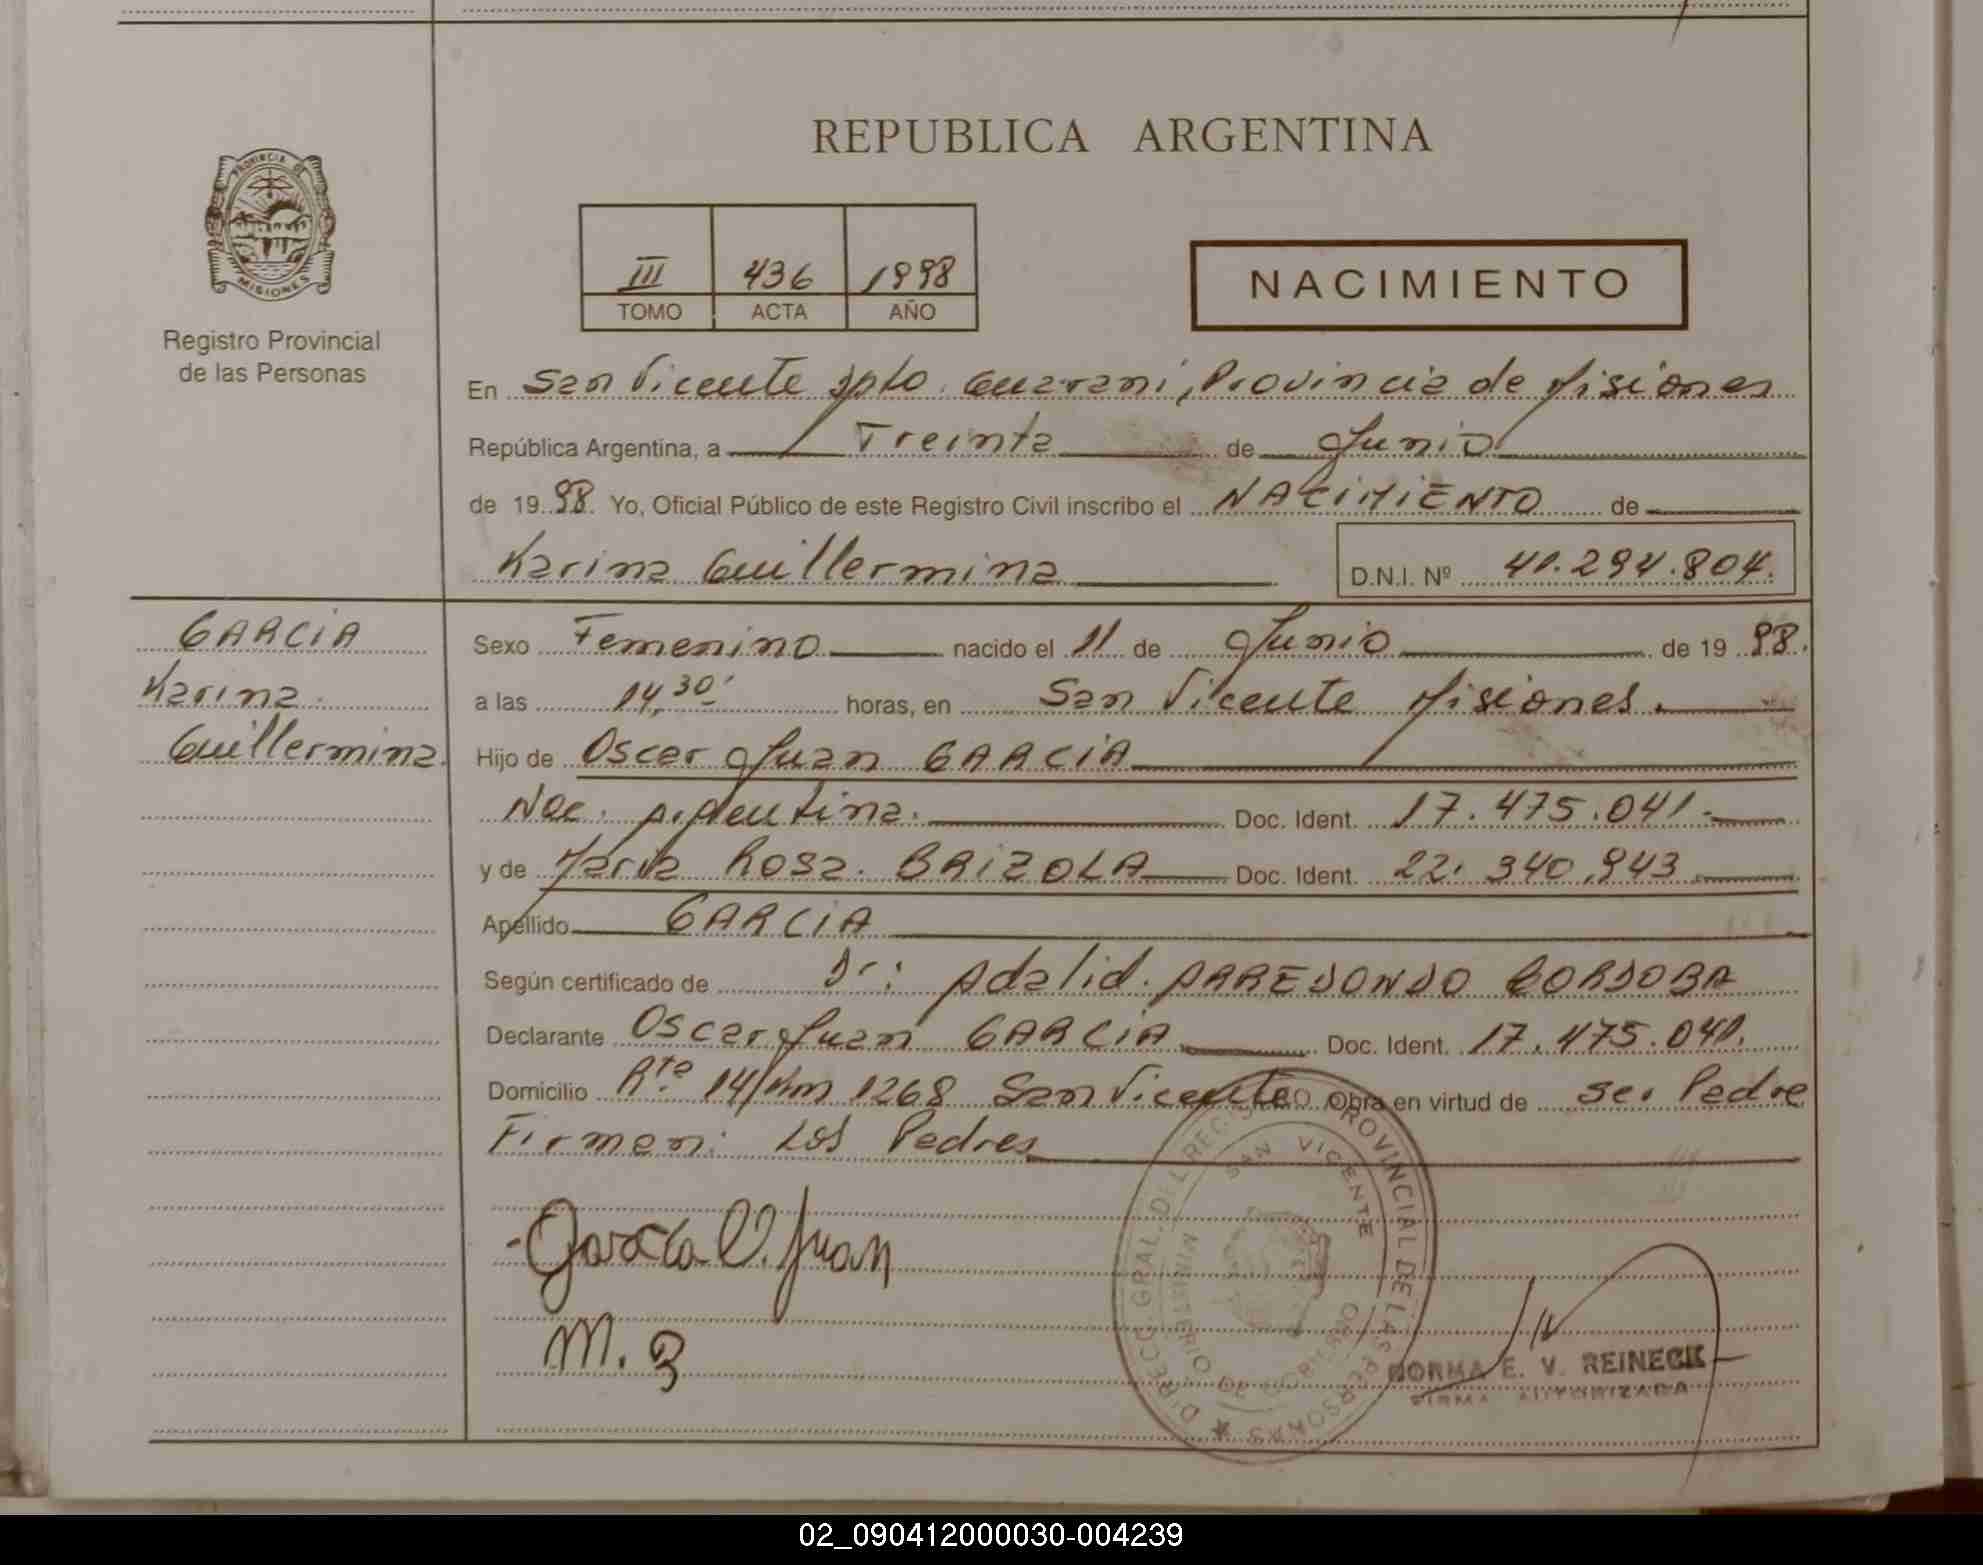 REPUBLICA ARGENTINA
PROVINCIA DE
MISIONES
Registro Provincial
de las Personas
III 436 1998
TOMO ACTA AÑO
NACIMIENTO
En San Vicente Dpto. Guarani, Provincia de Misiones
República Argentina, a Treinta de Junio
de 1998. Yo, Oficial Público de este Registro Civil inscribo el NACIMIENTO de
Karina Guillermina D.N.I. Nº 41.294.804.
GARCIA
Karina
Guillermina.
Sexo Femenino nacido el 11 de Junio de 1998.
a las 14,30' horas, en San Vicente Misiones.
Hijo de Oscar Juan GARCIA
Nac. Argentina. Doc. Ident. 17.475.041.
y de Maria Rosa. BRIZOLA Doc. Ident. 22.340.943
Apellido GARCIA
Según certificado de Dr: Adalid. ARREDONDO CORDOBA
Declarante Oscar Juan GARCIA Doc. Ident. 17.475.041.
Domicilio Rta 14/Km 1268 San Vicente Obra en virtud de ser Padre
Firman: Los Padres
Garcia O. Juan
M. B
DIRECC. GRAL. DEL REGISTRO PROVINCIAL DE LAS PERSONAS
SAN VICENTE
MINISTERIO DE GOBIERNO
NORMA E. V. REINECK
FIRMA AUTORIZADA
02_090412000030-004239